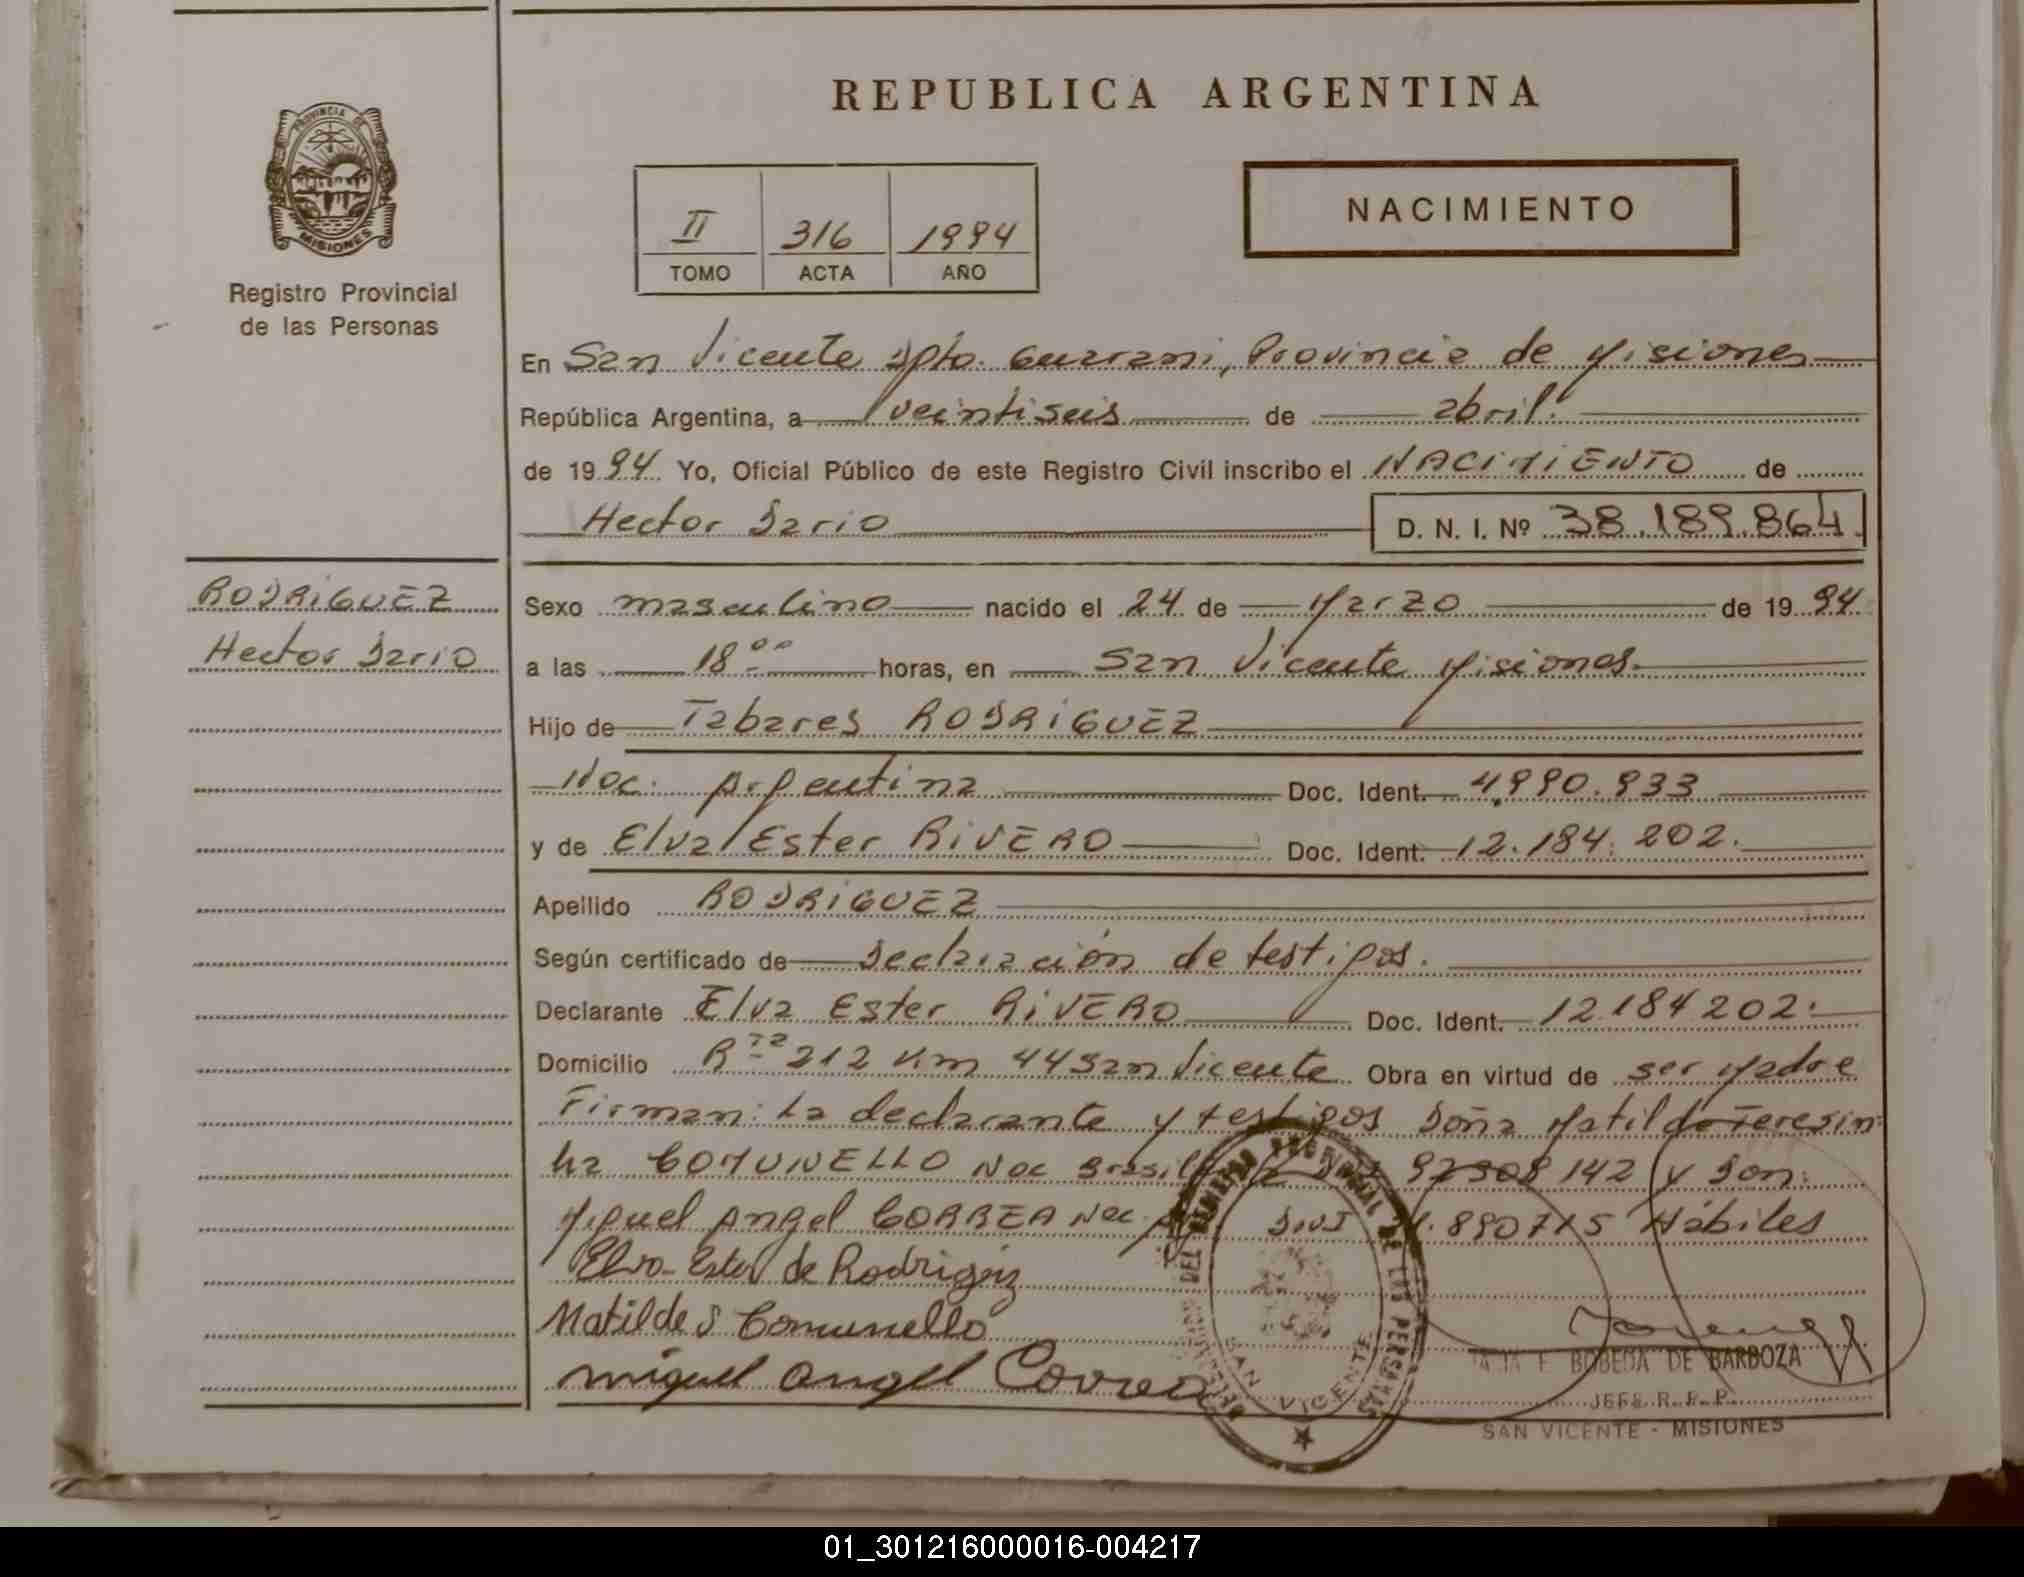 REPUBLICA ARGENTINA
PROVINCIA DE
MISIONES
Registro Provincial
de las Personas
II 316 1994
TOMO ACTA AÑO
NACIMIENTO
En San Vicente Dpto. Guarani, Provincia de Misiones
República Argentina, a veintiseis de abril.
de 1994 Yo, Oficial Público de este Registro Civil inscribo el NACIMIENTO de
Hector Dario D. N. I. Nº 38.189.864
RODRIGUEZ
Hector Dario
Sexo masculino nacido el 24 de Marzo de 1994
a las 18 ºº horas, en San Vicente Misiones.
Hijo de Tabares RODRIGUEZ
Nac. Argentina Doc. Ident. 4,990.933
y de Elva Ester RIVERO Doc. Ident. 12.184.202.
Apellido RODRIGUEZ
Según certificado de Declaración de testigos.
Declarante Elva Ester RIVERO Doc. Ident. 12.184202.
Domicilio Rta 212 Km 44 San Vicente Obra en virtud de ser Madre
Firman: La declarante y testigos Doña Matilde Teresin
ha COMUNELLO Nac 92308142 y Don:
Miguel Angel CORREA Nac. DNI .890715 Hábiles
Elva Ester de Rodriguez
Matilde S Comunello
Miguel Angel Correa
DEL REGISTRO PROVINCIAL DE LAS PERSONAS
SAN VICENTE
E BOBEDA DE BARBOZA
JEFE R. P. P.
SAN VICENTE - MISIONES
01_301216000016-004217